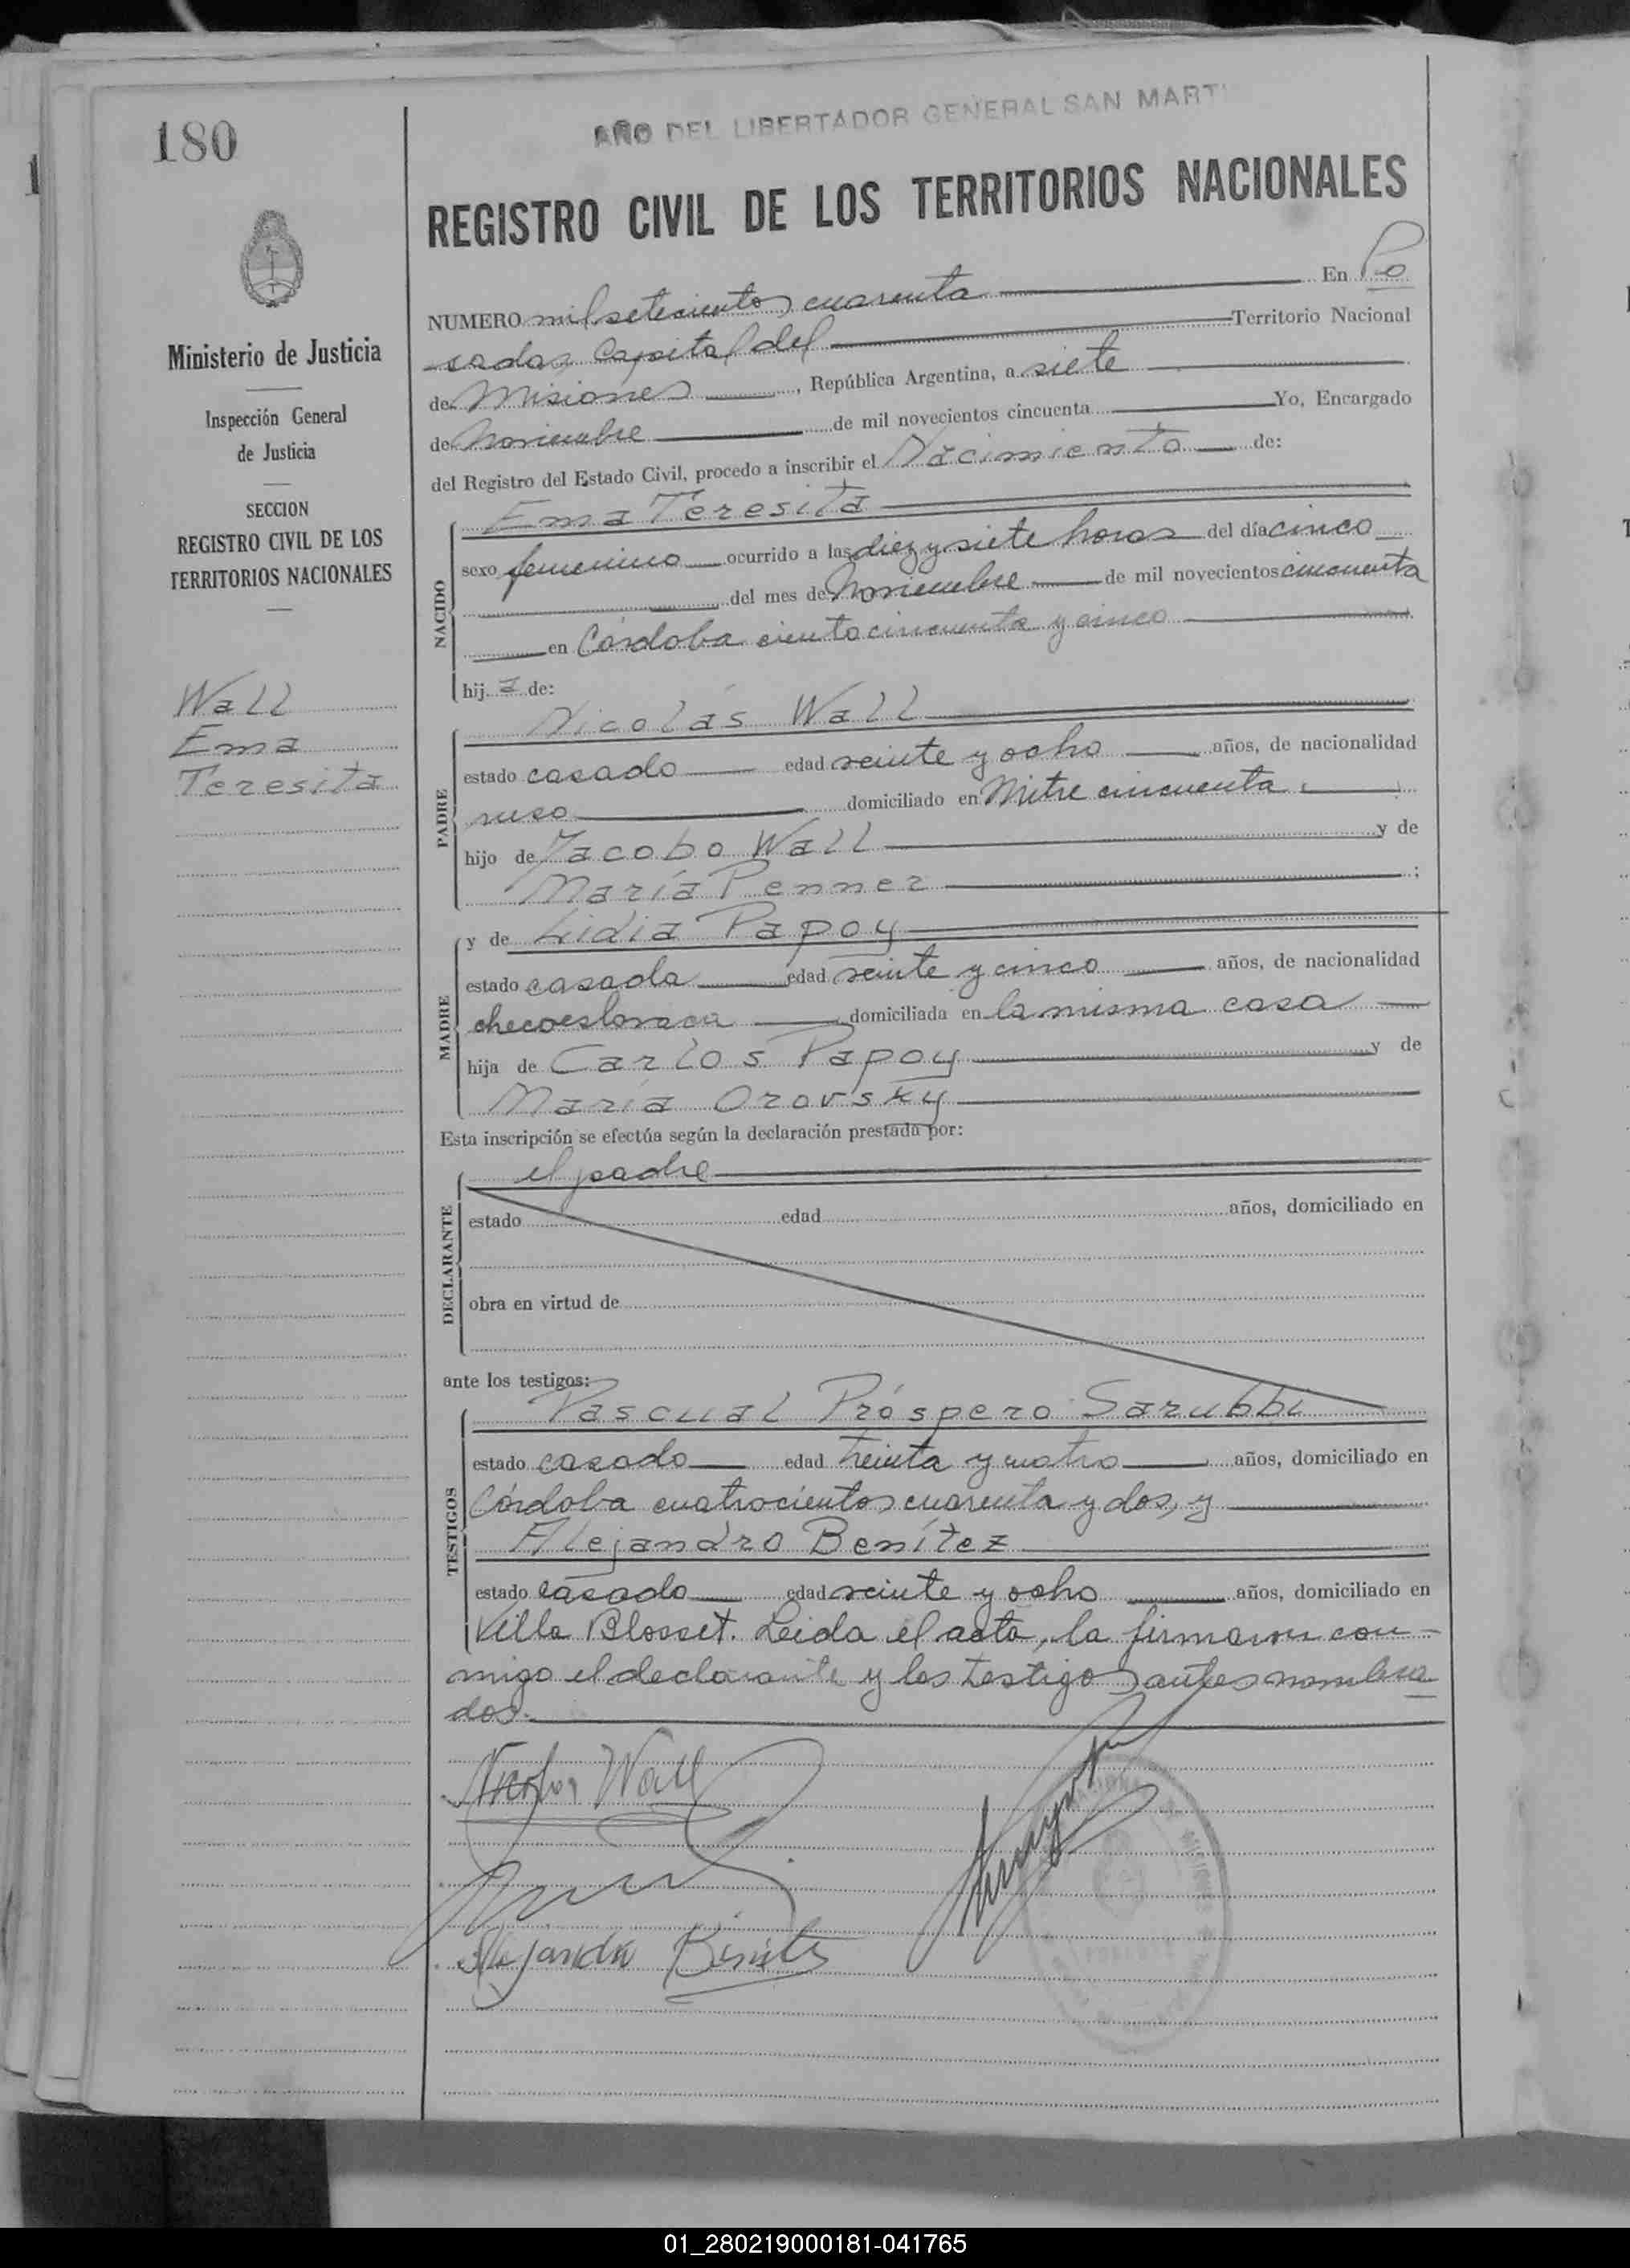 180
AÑO DEL LIBERTADOR GENERAL SAN MART
REGISTRO CIVIL DE LOS TERRITORIOS NACIONALES
Ministerio de Justicia
Inspección General
de Justicia
SECCION
REGISTRO CIVIL DE LOS
TERRITORIOS NACIONALES
Wall
Ema
Teresita
NUMERO mil setecientos cuarenta En Po
sadas Capital del Territorio Nacional
de Misiones, República Argentina, a siete
de Noviembre de mil novecientos cincuenta Yo, Encargado
del Registro del Estado Civil, procedo a inscribir el Nacimiento de:
NACIDO
Ema Teresita
sexo femenino ocurrido a las diez y siete horas del día cinco
del mes de Noviembre de mil novecientos cincuenta
en Córdoba ciento cincuenta y cinco
hija de:
PADRE
Nicolás Wall
estado casado edad veinte y ocho años, de nacionalidad
ruso domiciliado en Mitre cincuenta
hijo de Jacobo Wall y de
María Penner;
MADRE
y de Lidia Papoy
estado casada edad veinte y cinco años, de nacionalidad
checoeslovaca domiciliada en la misma casa
hija de Carlos Papoy y de
María Orovsky
Esta inscripción se efectúa según la declaración prestada por:
DECLARANTE
el padre
estado edad años, domiciliado en
obra en virtud de
ante los testigos:
TESTIGOS
Pascual Próspero Sarubbi
estado casado edad treinta y cuatro años, domiciliado en
Córdoba cuatrocientos cuarenta y dos, y
Alejandro Benítez
estado casado edad veinte y ocho años, domiciliado en
Villa Blosset. Leida el acta, la firmaron con-
migo el declarante y los testigos antes nombra
dos.
Nicolas Wall
Alejandro Benitez
01_280219000181-041765